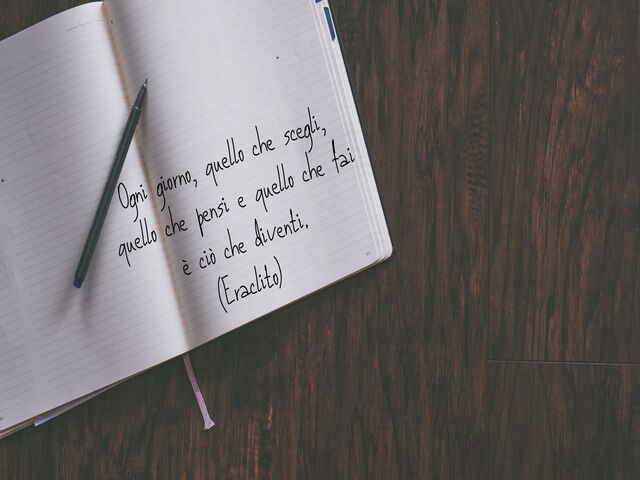 Ogni giorno, quello che scegli,
quello che pensi e quello che fai
è ciò che diventi.
(Eraclito)